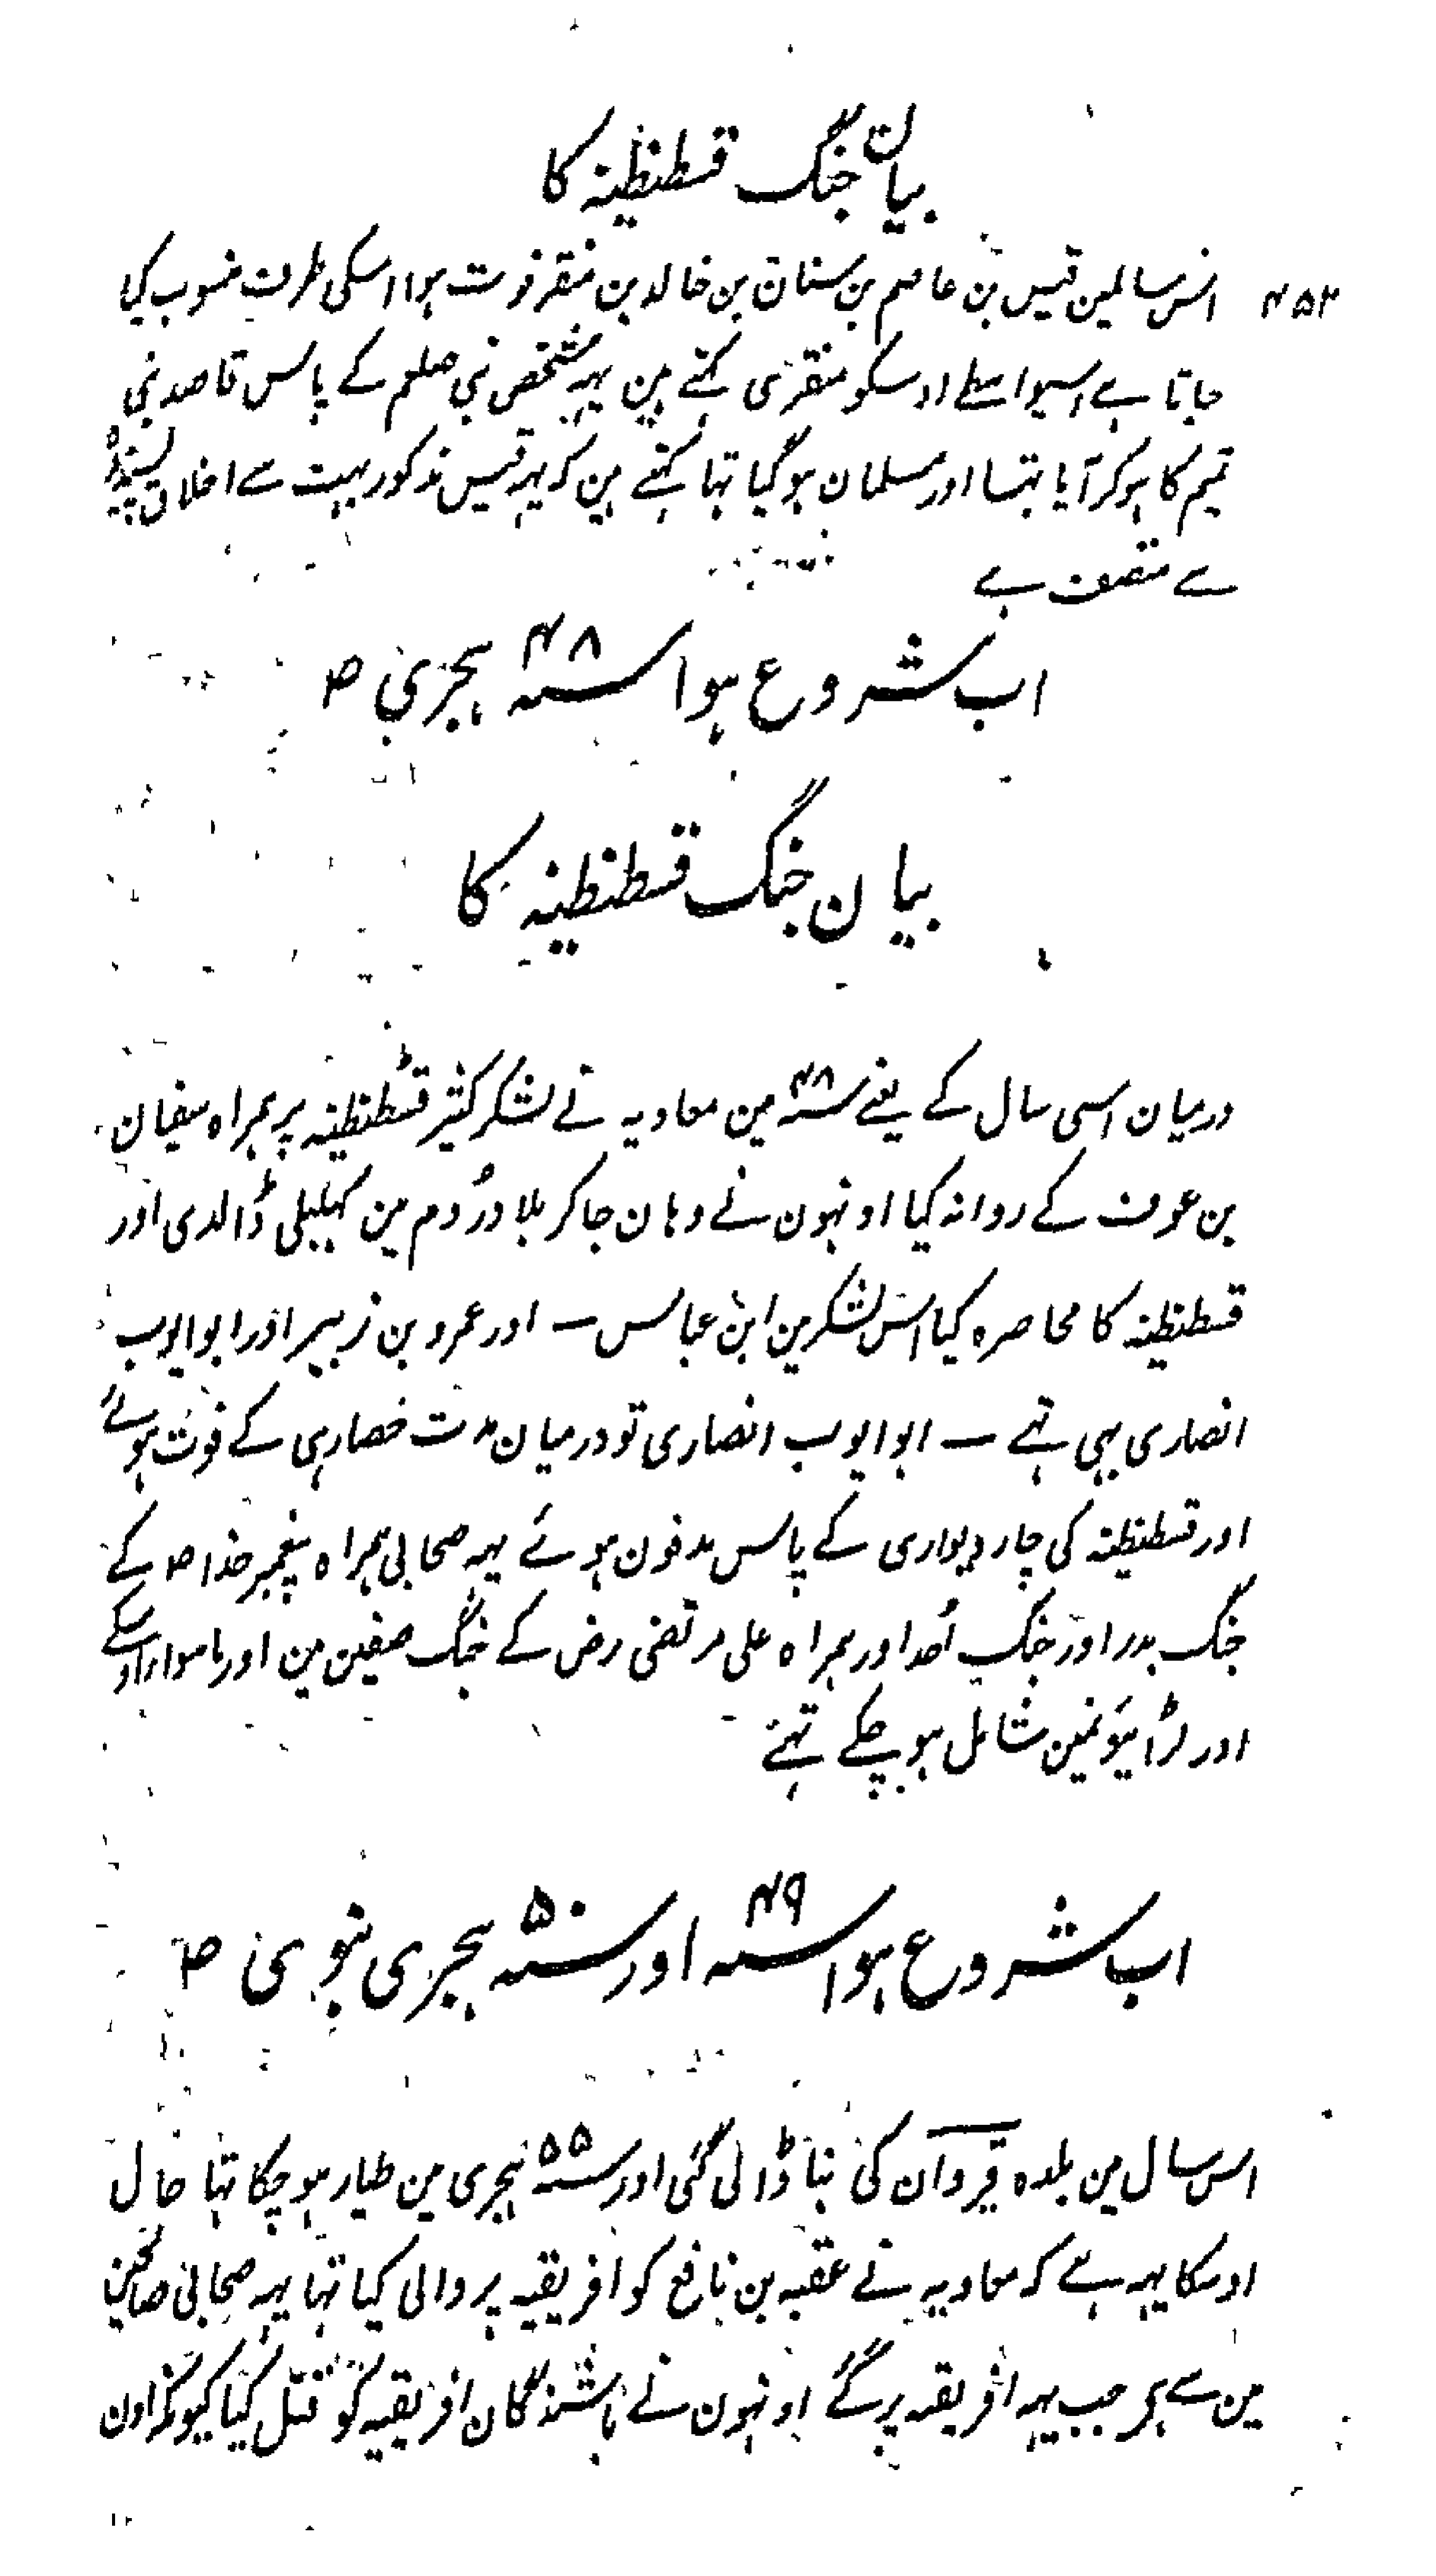 بیان جنگ قسطنطنیہ کا
۴۵۲
اس سالمین قیس بن عاصم بن سنان بن خالد بن منقر فوت ہوا اسکی طرف منسوب کیا
جاتا ہے اسیواسطے اوسکو منقری کہتے ہین یہہ شخص نبی صلعم کے پاس قاصد بنی
تمیم کا ہوکر آیا تہا اور مسلمان ہوگیا تہا کہتے ہین کہ یہہ قیس مذکور بہت سے اخلاق پسندیدہ
سے متصف ہے
اب شروع ہوا سنہ ۴۸ ہجری ص
بیان جنگ قسطنطنیہ کا
درمیان اسی سال کے یعنے سنہ ۴۸ مین معاویہ نے لشکر کثیر قسطنطنیہ پر ہمراہ سفیان
بن عوف کے روانہ کیا اونہون نے وہان جاکر بلاد روم مین کہلبلی ڈالدی اور
قسطنطنیہ کا محاصرہ کیا اس لشکر مین ابن عباس ۔ اور عمرو بن زبیر اور ابو ایوب
انصاری بہی تہے ۔ ابو ایوب انصاری تو درمیان مدت حصار ہی کے فوت ہوئے
اور قسطنطنیہ کی چار دیواری کے پاس مدفون ہوئے یہہ صحابی ہمراہ پیغمبر خدا ص کے
جنگ بدر اور جنگ اُحد اور ہمراہ علی مرتضی رض کے جنگ صفین مین اور ماسوا اوسکے
اور لڑائیونمین شامل ہو چکے تہے
اب شروع ہوا سنہ ۴۹ اور سنہ ۵۰ ہجری نبوی ص
اس سال مین بلدہ قیروان کی بنا ڈالی گئی اور سنہ ۵۵ ہجری مین طیار ہو چکا تہا حال
اوسکا یہہ ہے کہ معاویہ نے عقبہ بن نافع کو افریقیہ پر والی کیا تہا یہہ صحابی صالحین
مین سے ہے جب یہہ افریقہ پر گئے اونہون نے باشندگان افریقیہ کو قتل کیا کیونکہ اون